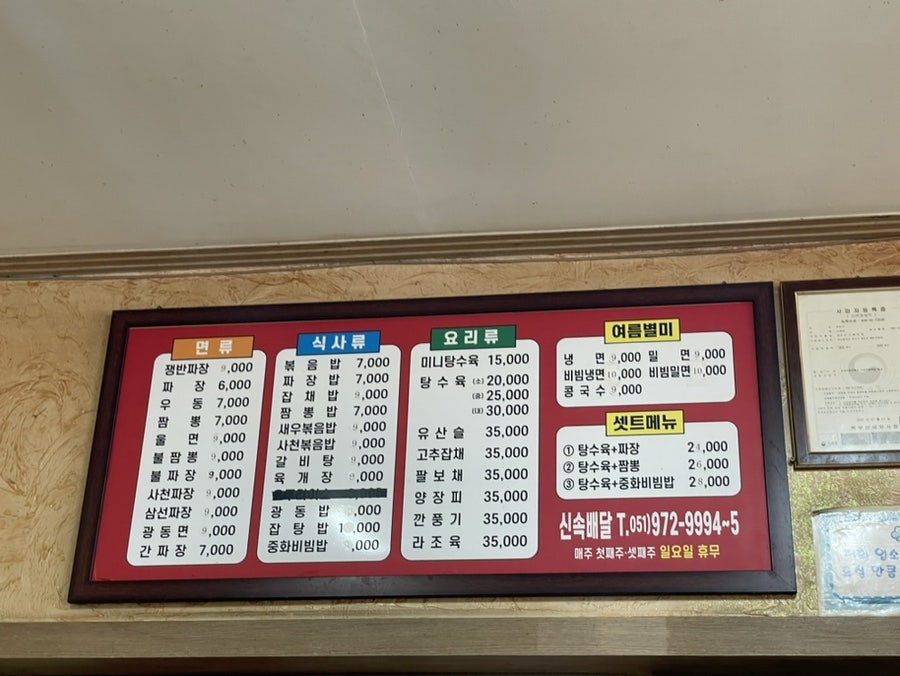 면 류
쟁반짜장 9,000
짜 장 6,000
우 동 7,000
짬 뽕 7,000
울 면 9,000
불 짬 뽕 9,000
불 짜 장 9,000
사천짜장 9,000
삼선짜장 9,000
광 동 면 9,000
간 짜 장 7,000
식 사 류
볶 음 밥 7,000
짜 장 밥 7,000
잡 채 밥 9,000
짬 뽕 밥 7,000
새우볶음밥 9,000
사천볶음밥 9,000
갈 비 탕 9,000
육 개 장 9,000
광 동 밥 ,000
잡 탕 밥 ,000
중화비빔밥 ,000
요 리 류
미니탕수육 15,000
탕 수 육 (소) 20,000
(중) 25,000
(대) 30,000
유 산 슬 35,000
고추잡채 35,000
팔 보 채 35,000
양 장 피 35,000
깐 풍 기 35,000
라 조 육 35,000
여름별미
냉 면 9,000 밀 면 9,000
비빔냉면 10,000 비빔밀면 10,000
콩 국 수 9,000
셋트메뉴
① 탕수육+짜장 24,000
② 탕수육+짬뽕 26,000
③ 탕수육+중화비빔밥 28,000
신속배달 T.051)972-9994~5
매주 첫째주·셋째주 일요일 휴무
사업자등록증
저희 업소
드실 만큼